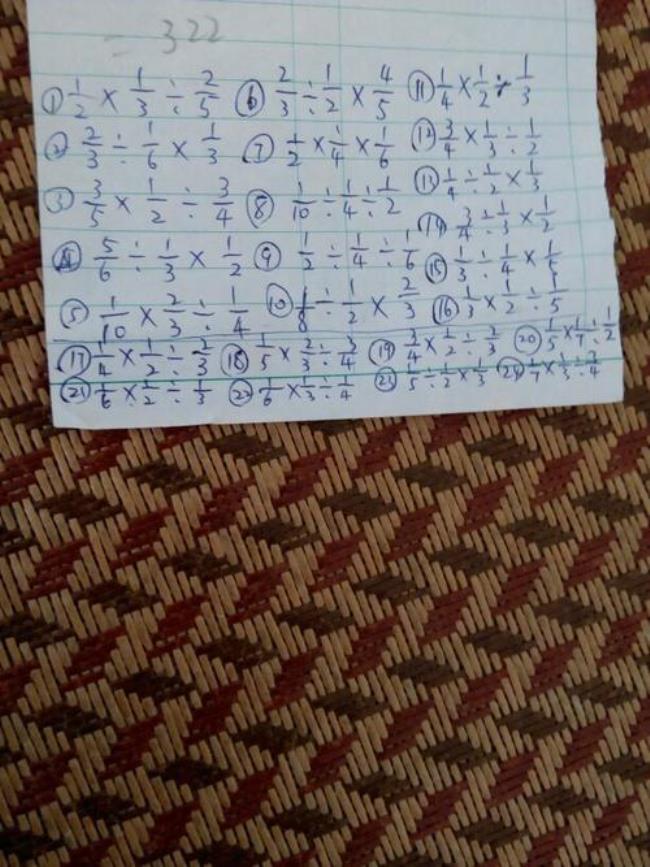 = 322
① 1/2 × 1/3 ÷ 2/5 ⑥ 2/3 ÷ 1/2 × 4/5 ⑪ 1/4 × 1/2 ÷ 1/3
② 2/3 ÷ 1/6 × 1/3 ⑦ 1/2 × 1/4 × 1/6 ⑫ 3/4 × 1/3 ÷ 1/2
⑬ 1/4 ÷ 1/2 × 1/3
③ 3/5 × 1/2 ÷ 3/4 ⑧ 1/10 ÷ 1/4 ÷ 1/2
⑭ 3/4 ÷ 1/3 × 1/2
④ 5/6 ÷ 1/3 × 1/2 ⑨ 1/2 ÷ 1/4 ÷ 1/6
⑮ 1/3 ÷ 1/4 × 1/5
⑤ 1/10 × 2/3 ÷ 1/4 ⑩ 1/8 ÷ 1/2 × 2/3 ⑯ 1/3 × 1/2 ÷ 1/5
⑰ 1/4 × 1/2 ÷ 2/3 ⑱ 1/5 × 2/3 ÷ 3/4 ⑲ 3/4 × 1/2 ÷ 2/3 ⑳ 1/5 × 1/7 ÷ 1/2
㉑ 1/6 × 1/2 ÷ 1/3 ㉒ 1/6 × 1/3 ÷ 1/4 ㉓ 1/5 ÷ 1/2 × 1/3 ㉔ 1/7 × 1/3 ÷ 3/4